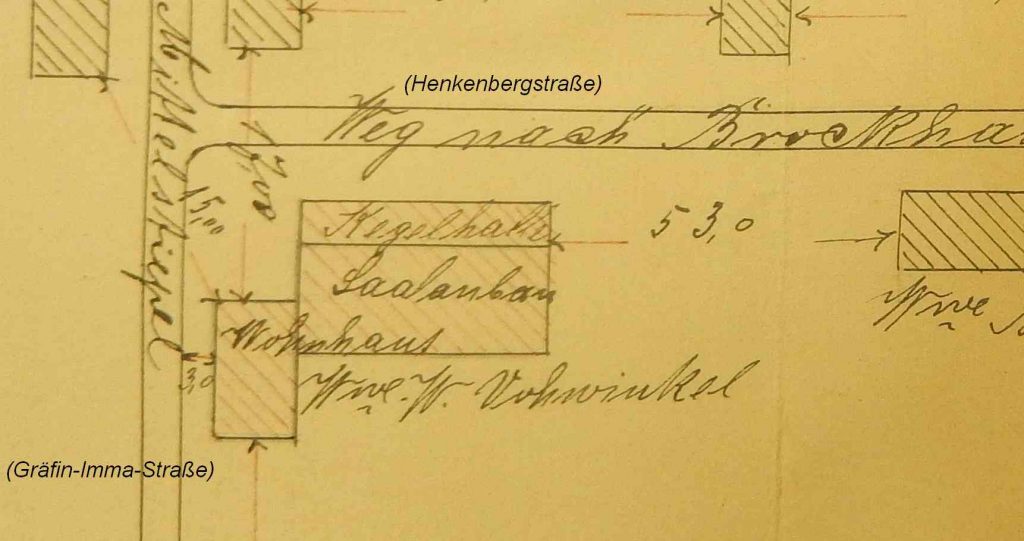 (Henkenbergstraße)
Weg nach Brockha
17,00
15,00
Kegelhalle
53,0
Saalanbau
Wohnhaus
Wwe.
3,0
Wwe. W. Vohwinkel
(Gräfin-Imma-Straße)